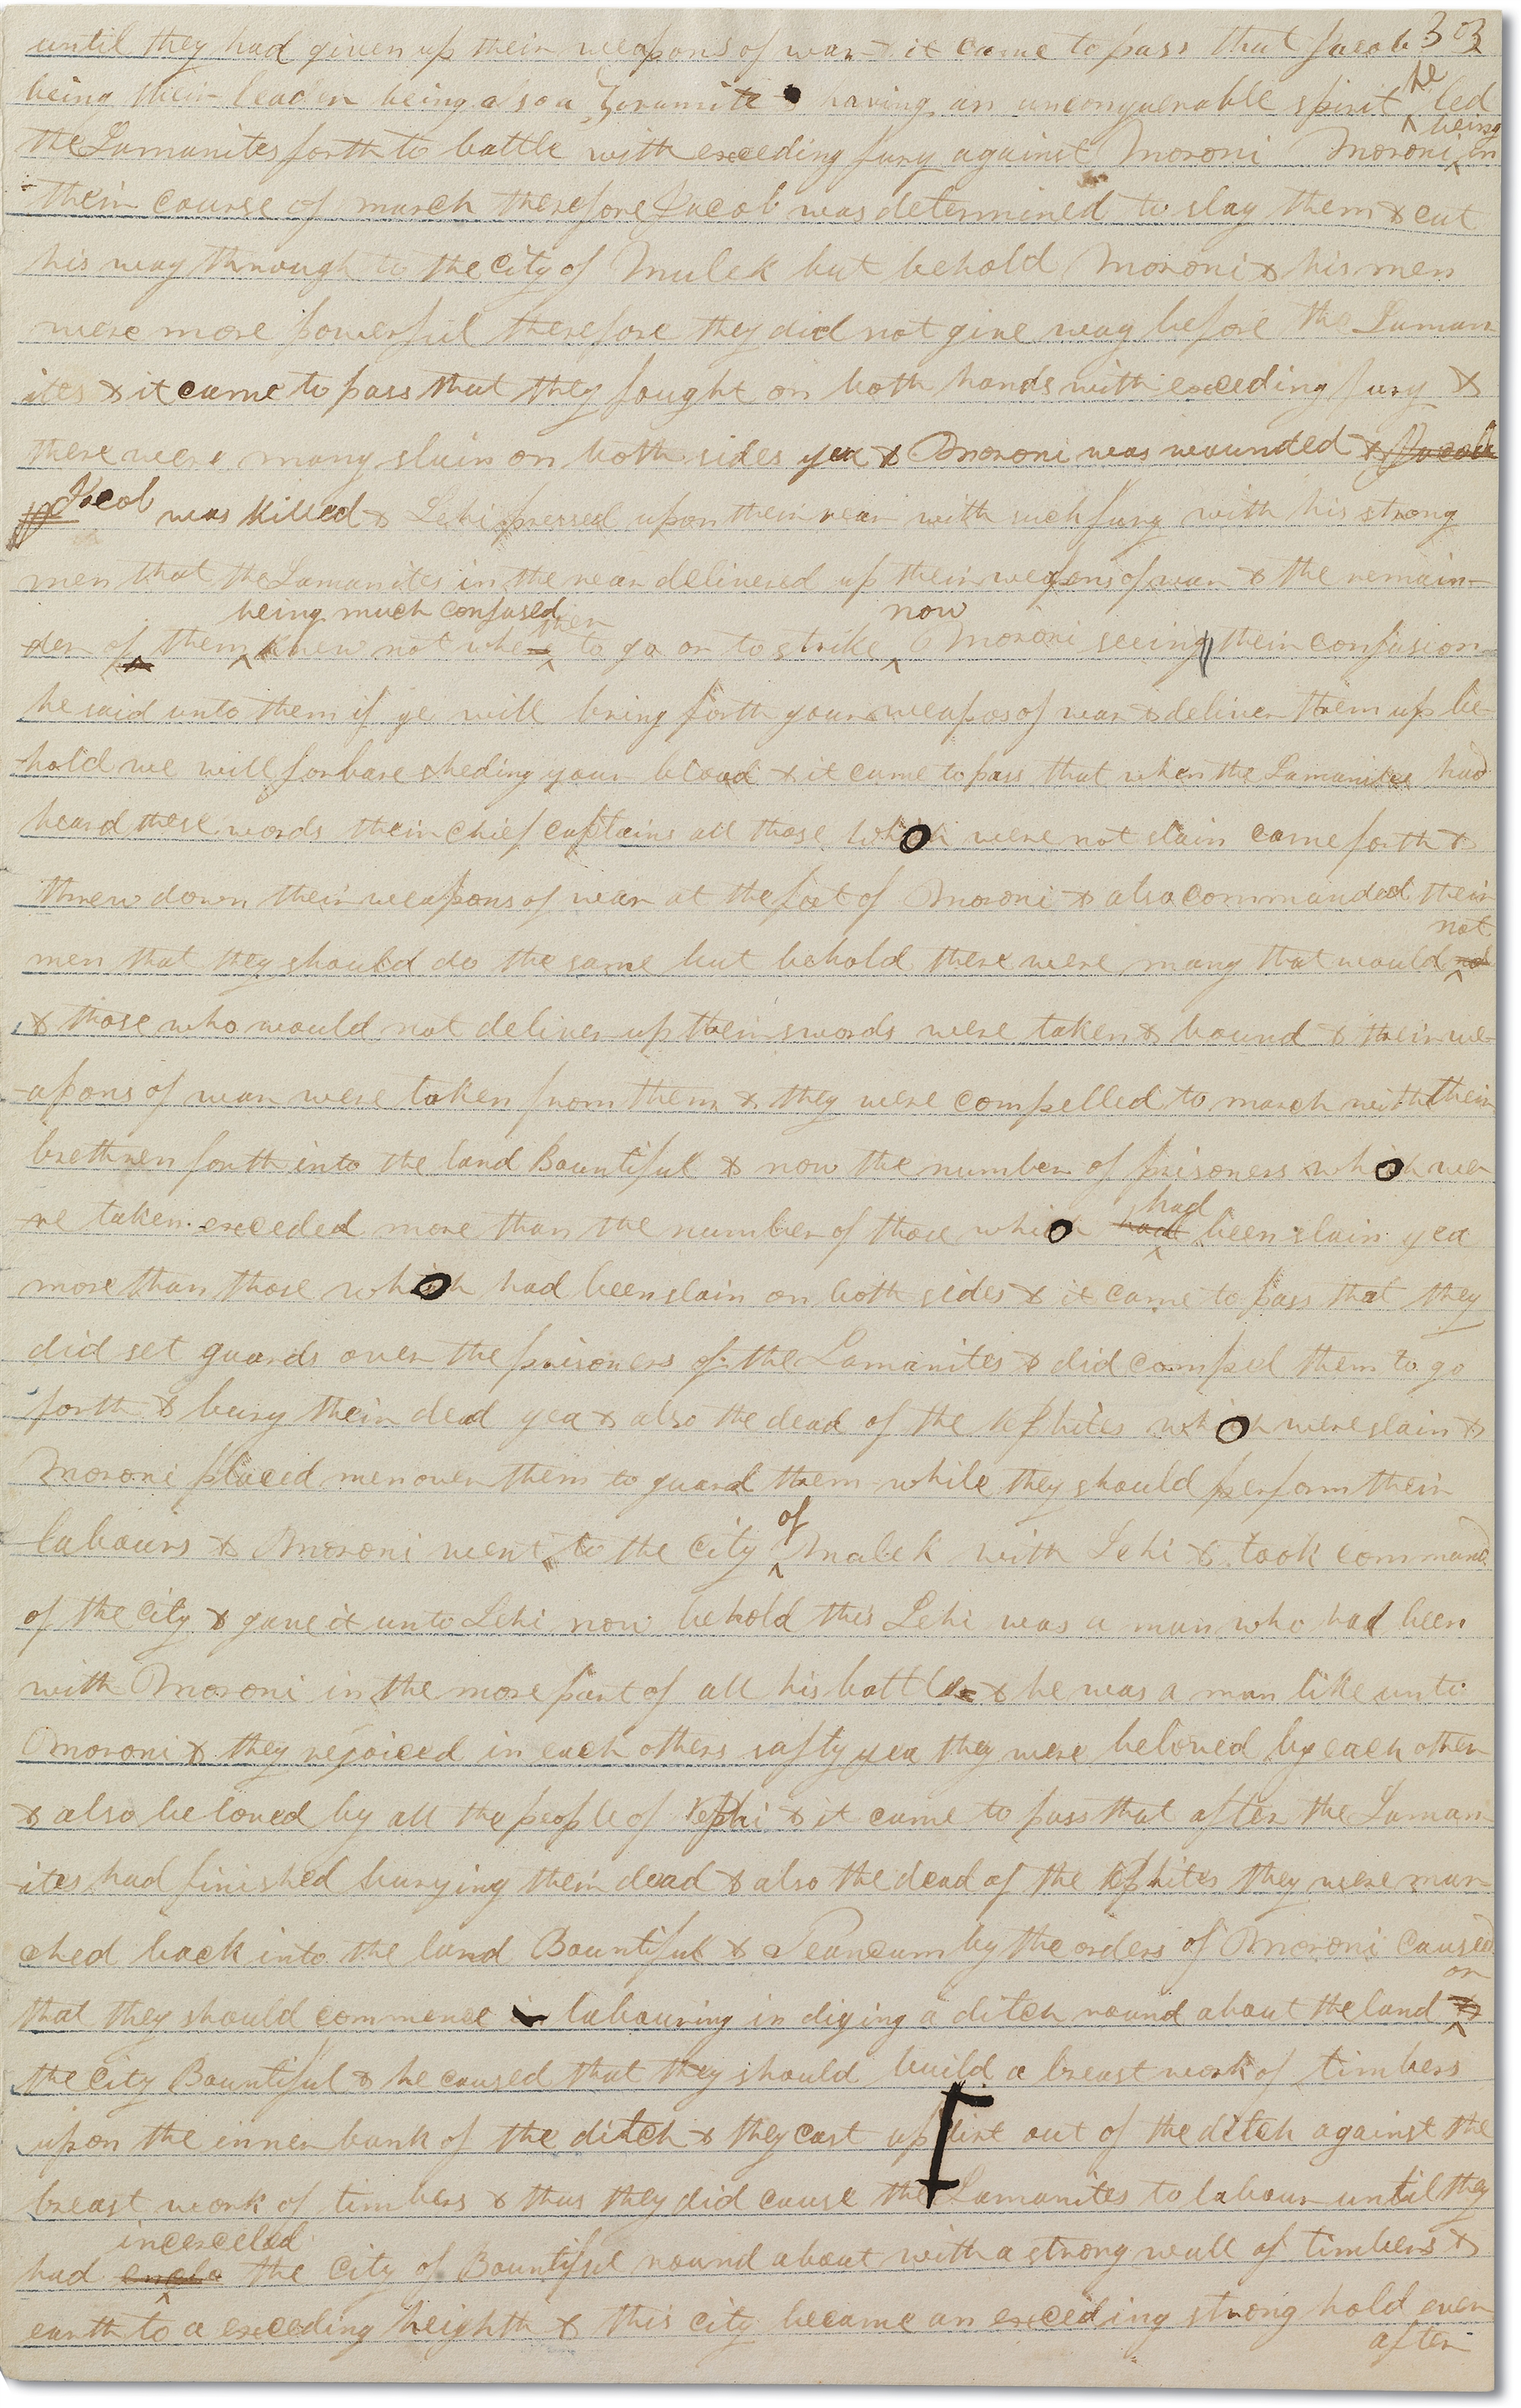 until they had given up their weapons of war & it came to pass that Jacob 303
being their leader being also a Zoramite & having an unconquerable spirit he led
the Lamanites forth to battle with exceding fury against Moroni Moroni being in
their course of march therefore Jacob was determined to slay them & cut
his way through to the City of Mulek but behold Moroni & his men
were more powerful therefore they did not give way before the Laman
ites & it came to pass that they fought on both hands with exceding fury &
there were many slain on both sides yea & Moroni was wounded & Jacob
Jacob was killed & Lehi pressed upon their rear with such fury with his strong
men that the Lamanites in the rear delivered up their weapons of war & the remain-
being much confused then now
der of them knew not whe to go or to strike Moroni seeing their confusion
he said unto them if ye will bring forth your weapos of war & deliver them up be-
-hold we will forbare sheding your blood & it came to pass that when the Lamanites had
heard these words their chief captains all those who were not slain came forth &
threw down their weapons of war at the feet of Moroni & also commanded their
not
men that they should do the same but behold there were many that would not
& those who would not deliver up their swords were taken & bound & their we-
-apons of war were taken from them & they were compelled to march with their
brethren forth into the land Bountiful & now the number of prisoners who we-
had
-re taken exceded more than the number of those who had been slain yea
more than those who had been slain on both sides & it came to pass that they
did set guards over the prisoners of the Lamanites & did compel them to go
forth & bury their dead yea & also the dead of the Nephites who were slain &
Moroni placed men over them to guard them while they should perform their
of
labours & Moroni went to the City Mulek with Lehi & took command
of the City & gave it unto Lehi now behold this Lehi was a man who had been
with Moroni in the more part of all his battles & he was a man like unto
Moroni & they rejoiced in each others safty yea they were beloved by each other
& also beloved by all the people of Nephi & it came to pass that after the Laman
-ites had finished burying their dead & also the dead of the Nephites they were mar
ched back into the land Bountiful & Teancum by the orders of Moroni caused
or
that they should commence labouring in diging a ditch round about the land &
the City Bountiful & he caused that they should build a breast work of timbers
upon the inner bank of the ditch & they cast up dirt out of the ditch against the
breast work of timbers & thus they did cause the Lamanites to labour until they
incerceled
had the City of Bountiful round about with a strong wall of timbers &
earth to a exceding heighth & this city became an exceding strong hold ever
after